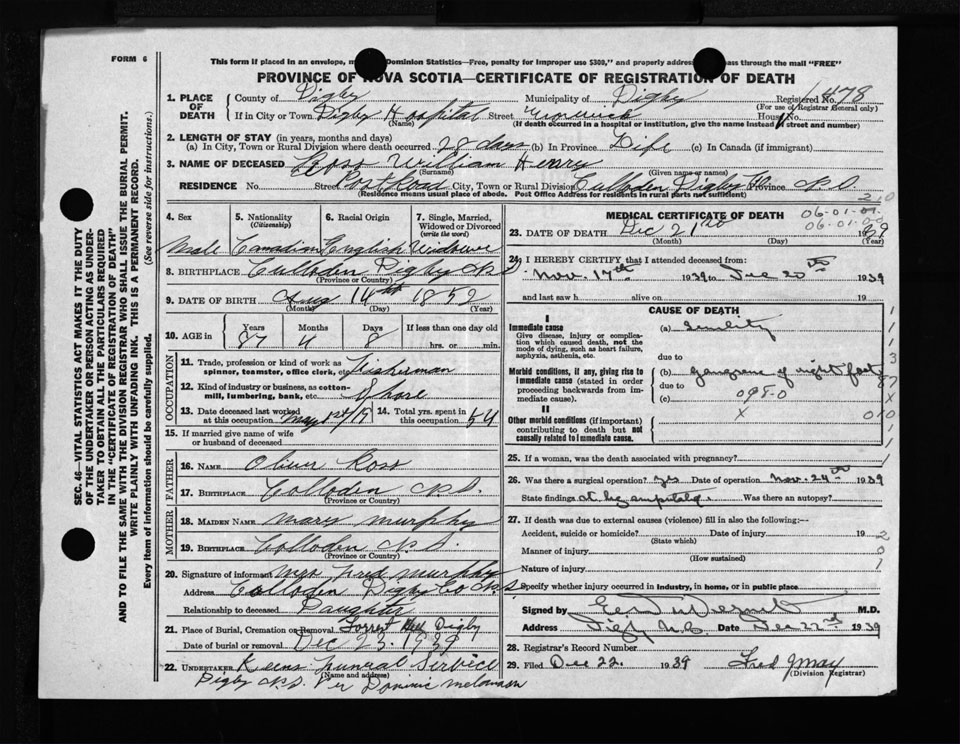 FORM 6
This form if placed in an envelope, Dominion Statistics—Free, penalty for improper use $300," and properly address pass through the mail "FREE"
PROVINCE OF NOVA SCOTIA—CERTIFICATE OF REGISTRATION OF DEATH
1. PLACE OF DEATH County of Digby Municipality of Digby Registered No. 1478
(For use of Registrar General only)
If in City or Town Digby Hospital Street Warwick House No.
(Name) (If death occurred in a hospital or institution, give the name instead of street and number.
2. LENGTH OF STAY (in years, months and days)
(a) In City, Town or Rural Division where death occurred 28 days (b) In Province Life (c) In Canada (if immigrant)
3. NAME OF DECEASED Ross William Henry
(Surname) (Given name or names)
RESIDENCE No. Street Post Road City, Town or Rural Division Culloden Digby Co Province N.S.
(Residence means usual place of abode. Post Office Address for residents in rural parts not sufficient)
4. Sex 5. Nationality (Citizenship) 6. Racial Origin 7. Single, Married, Widowed or Divorced (write the word)
Male Canadian English Widower
8. BIRTHPLACE Culloden Digby N.S
(Province or Country)
9. DATE OF BIRTH Aug 14th 1852
(Month) (Day) (Year)
10. AGE in Years Months Days If less than one day old
87 4 8 hrs. or min.
OCCUPATION
11. Trade, profession or kind of work as spinner, teamster, office clerk, etc. Fisherman
12. Kind of industry or business, as cotton-mill, lumbering, bank, etc. Shore
13. Date deceased last worked at this occupation May 1st/19 14. Total yrs. spent in this occupation 54
15. If married give name of wife or husband of deceased
FATHER
16. NAME Oliver Ross
17. BIRTHPLACE Colloden N.S.
(Province or Country)
MOTHER
18. MAIDEN NAME Mary Murphy
19. BIRTHPLACE Colloden N.S.
(Province or Country)
20. Signature of informant Mrs Fred Murphy
Address Colloden Digby Co N.S
Relationship to deceased Daughter
21. Place of Burial, Cremation or Removal Forrest Hill Digby
Date of burial or removal Dec 23. 1939
22. UNDERTAKER Keens Funeral Service
(Name and address)
Digby N.S. Per Dominic Melanson
MEDICAL CERTIFICATE OF DEATH
06-01-01
06-01-00
23. DATE OF DEATH Dec 21st 1939
(Month) (Day) (Year)
24. I HEREBY CERTIFY that I attended deceased from:
Nov. 17th 1939 to Dec 20th 1939
and last saw h alive on 19
CAUSE OF DEATH
I
Immediate cause (a) Senility
Give disease, injury or complication which caused death, not the mode of dying, such as heart failure, asphyxia, asthenia, etc.
due to
Morbid conditions, if any, giving rise to immediate cause (stated in order proceeding backwards from immediate cause). (b) Gangrene of right foot
due to 098-0
(c) X
II
Other morbid conditions (if important) contributing to death but not causally related to immediate cause.
25. If a woman, was the death associated with pregnancy?
26. Was there a surgical operation? yes Date of operation Nov. 24th 1939
State findings Was there an autopsy?
27. If death was due to external causes (violence) fill in also the following:—
Accident, suicide or homicide? Date of injury 19
(State which)
Manner of injury
(How sustained)
Nature of injury
Specify whether injury occurred in industry, in home, or in public place
Signed by M.D.
Address Digby N.S. Date Dec 22nd 1939
28. Registrar's Record Number
29. Filed Dec 22. 1939 Fred J May
(Division Registrar)
SEC. 46—VITAL STATISTICS ACT MAKES IT THE DUTY
OF THE UNDERTAKER OR PERSON ACTING AS UNDER-
TAKER TO OBTAIN ALL THE PARTICULARS REQUIRED
IN THE "CERTIFICATE OF REGISTRATION OF DEATH"
AND TO FILE THE SAME WITH THE DIVISION REGISTRAR WHO SHALL ISSUE THE BURIAL PERMIT.
WRITE PLAINLY WITH UNFADING INK. THIS IS A PERMANENT RECORD.
Every item of information should be carefully supplied. (See reverse side for instructions.)